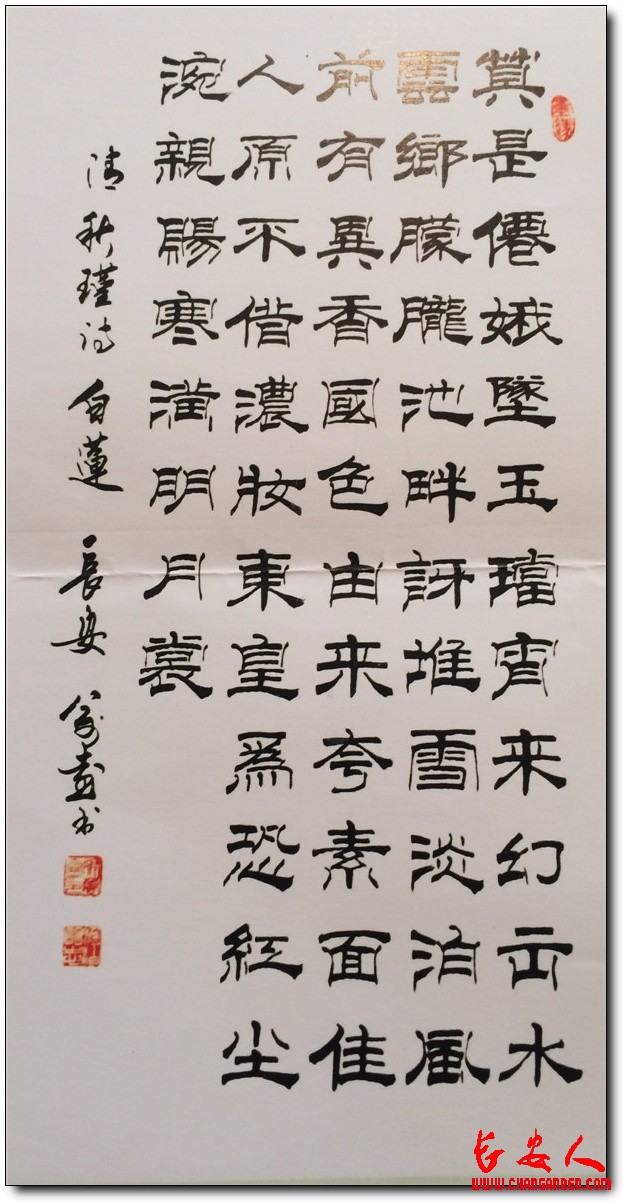 莫是僊娥墜玉璫宵来幻出水
雲鄉朦朧池畔訝堆雪淡泊風
前有異香國色由来夸素面佳
人原不借濃妝東皇爲恐紅尘
涴親賜寒潢明月裳
清秋瑾诗 白蓮 長安 书
长安人
WWW.CHANGANREN.COM